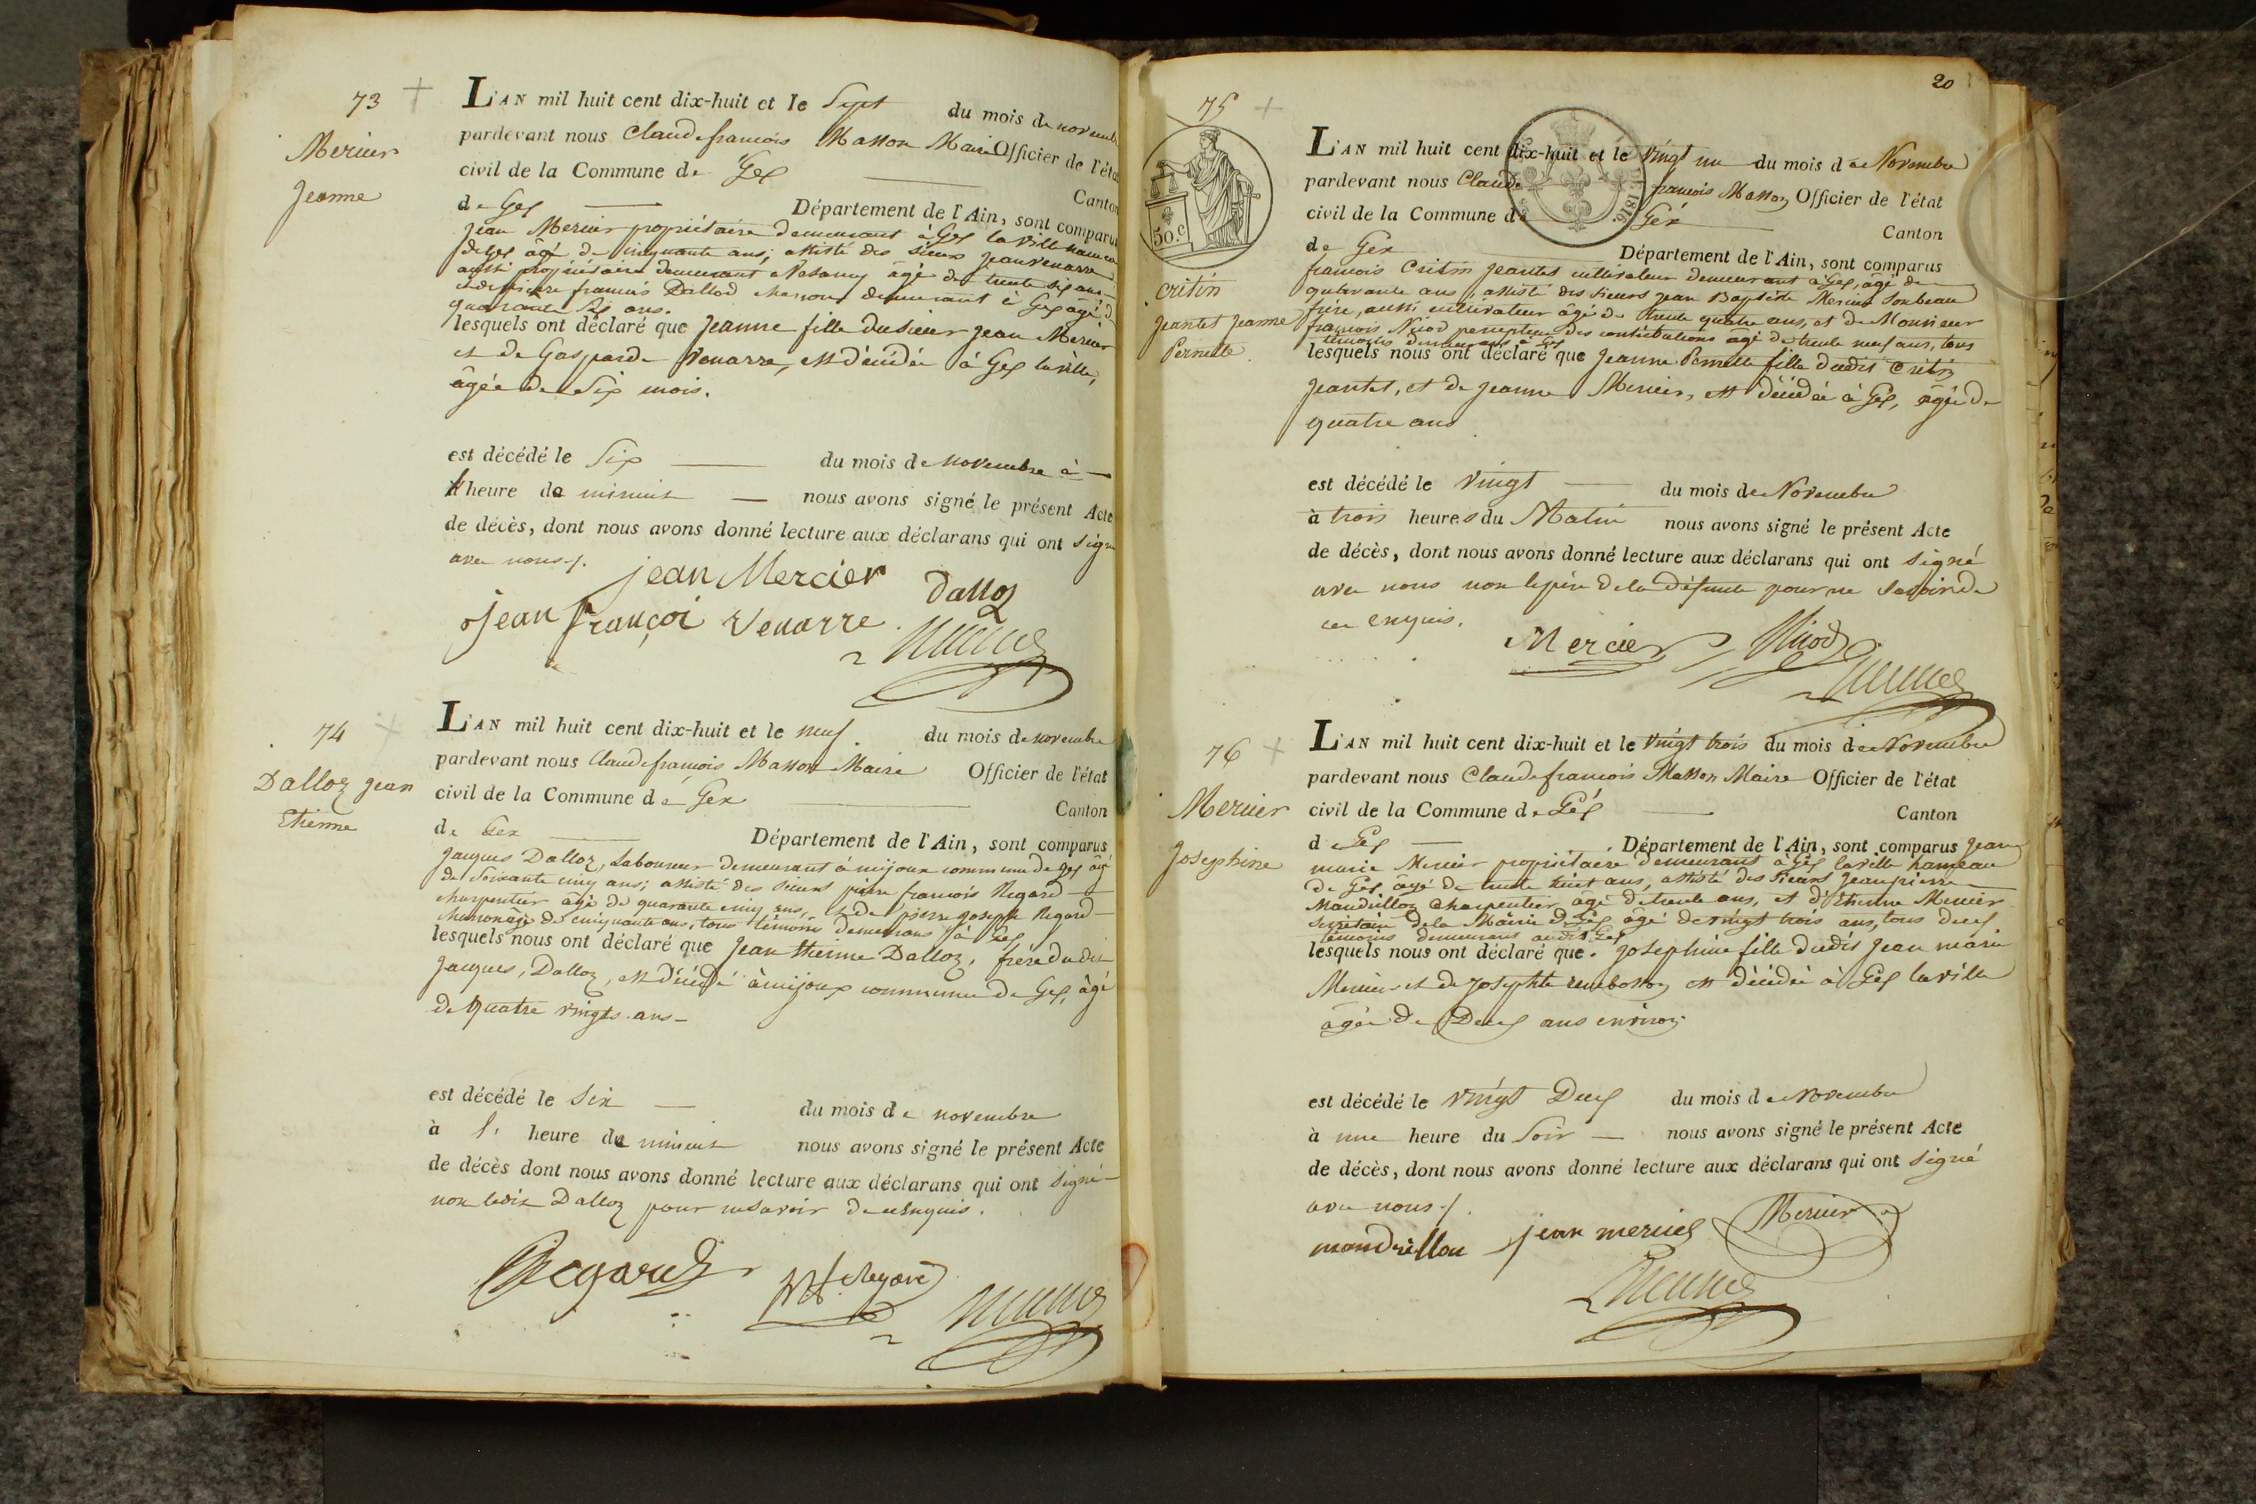 73
Mercier
Jeanne
L'AN mil huit cent dix-huit et le Sept du mois de novembre
pardevant nous Claude françois Masson Maire Officier de l'état
civil de la Commune de Gex
Canton
de Gex Département de l'Ain, sont comparus
Jean Mercier propriétaire demeurant à Gex la ville hameau
de Gex âgé de cinquante ans; assisté des sieurs Jean venarre
aussi propriétaire demeurant à Vesancy âgé de trente six ans
françois Dallod demeurant à Gex âgé de
quarante six ans.
lesquels ont déclaré que Jeanne fille du sieur Jean Mercier
et de Gasparde Venarre, est décédée à Gex la ville,
âgée de Six mois.
est décédé le Six du mois de Novembre à
l'heure de minuit nous avons signé le présent Acte
de décès, dont nous avons donné lecture aux déclarans qui ont signé
avec nous.
jean Mercier Dalloz
jean françoi Venarre
74
Dalloz Jean
Etienne
L'AN mil huit cent dix-huit et le neuf du mois de novembre
pardevant nous Claude françois Masson Maire Officier de l'état
civil de la Commune de Gex
Canton
de Gex Département de l'Ain, sont comparus
Jacques Dalloz, Laboureur demeurant à mijoux commune de Gex âgé
de Soixante cinq ans; assisté des sieurs pierre françois Regard
charpentier âgé de quarante cinq ans, et de pierre joseph Regard
âgé de cinquante ans, tous témoins demeurans à Gex
lesquels nous ont déclaré que Jean Etienne Dalloz, frère dudit
Jacques, Dalloz, est décédé à mijoux commune de Gex, âgé
de quatre vingts ans
est décédé le Six du mois de novembre
à l' heure de minuit nous avons signé le présent Acte
de décès dont nous avons donné lecture aux déclarans qui ont signé
non ledit Dalloz pour ne savoir de ce enquis.
Regard
20
75
50.c
1816.
Critin
Jeantet Jeanne
Pernette
L'AN mil huit cent dix-huit et le vingt un du mois de Novembre
pardevant nous Claude françois Masson Officier de l'état
civil de la Commune de Gex
Canton
de Gex Département de l'Ain, sont comparus
françois Critin Jeantet cultivateur demeurant à Gex, âgé de
quarante ans, assisté des Sieurs Jean Baptiste Mercier Son beau
frère, aussi cultivateur âgé de trente quatre ans, et de Monsieur
françois Nicod percepteur des contributions âgé de trente neuf ans, tous
témoins demeurans à Gex
lesquels nous ont déclaré que Jeanne Pernette fille dudit Critin
Jeantet, et de Jeanne Mercier, est décédée à Gex, âgée de
quatre ans
est décédé le vingt du mois de Novembre
à trois heures du Matin nous avons signé le présent Acte
de décès, dont nous avons donné lecture aux déclarans qui ont signé
avec nous non le père de la défunte pour ne savoir de
ce enquis.
Mercier Nicod
76
Mercier
Josephine
L'AN mil huit cent dix-huit et le vingt trois du mois de Novembre
pardevant nous Claude francois Masson Maire Officier de l'état
civil de la Commune de Gex
Canton
de Gex Département de l'Ain, sont comparus Jean
marie Mercier propriétaire demeurant à Gex la ville hameau
de Gex âgé de trente huit ans, assisté des Sieurs Jean pierre
Mandrillon Charpentier âgé de trente ans, et d'Etienne Mercier
Secrétaire de la Mairie de Gex âgé de vingt trois ans, tous deux
témoins demeurans audit Gex
lesquels nous ont déclaré que Josephine fille dudit Jean marie
Mercier et de Josephte est décédée à Gex la ville
âgée de Deux ans environ
est décédé le vingt Deux du mois de Novembre
à une heure du Soir nous avons signé le présent Acte
de décès, dont nous avons donné lecture aux déclarans qui ont signé
avec nous.
mandrillon jean mercier Mercier